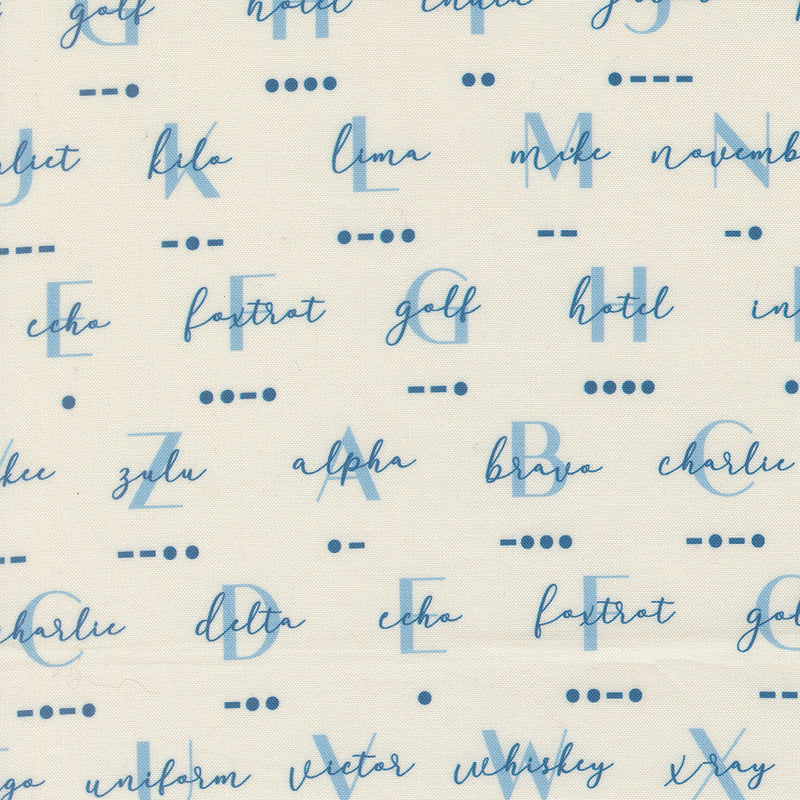 golf G hotel H india I J
––• •••• •• •–––
rliet J kilo K lima L mike M novemb N
––– –•– •–•• –– –•
echo E foxtrot F golf G hotel H in
• ••–• ––• •••• •
kee zulu Z alpha A bravo B charlie C
–– ––•• •– –••• –•–•
charlie C delta D echo E foxtrot F gol G
–•–• –•• • ••–• ––
go uniform U victor V whiskey W x-ray X